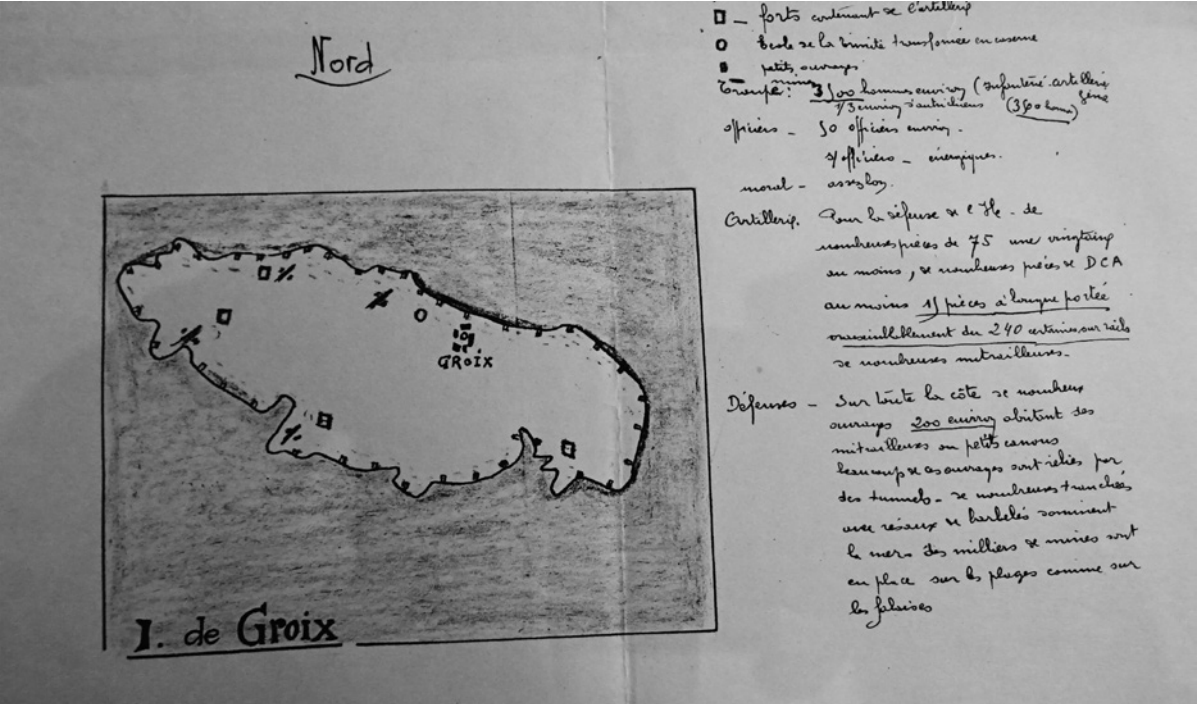 Nord
forts contenant de l'artillerie
École de la Trinité transformée en caserne
petits ouvrages
mines
Troupe : 3500 hommes environ (infanterie artillerie génie
1/3 environ d'autrichiens
officiers - 50 officiers environ.
s/officiers - énergiques.
moral - assez bon.
Artillerie. Pour la défense de l'Ile - de
nombreuses pièces de 75 une vingtaine
au moins, de nombreuses pièces de DCA
au moins 15 pièces à longue portée
vraisemblablement du 240 certaines sur rails
de nombreuses mitrailleuses.
Défenses - Sur toute la côte de nombreux
ouvrages 200 environ abritent des
mitrailleuses ou petits canons
beaucoup de ces ouvrages sont reliés par
des tunnels - de nombreuses tranchées
avec réseaux de barbelés dominent
la mer. des milliers de mines sont
en place sur les plages comme sur
les falaises
GROIX
I. de Groix